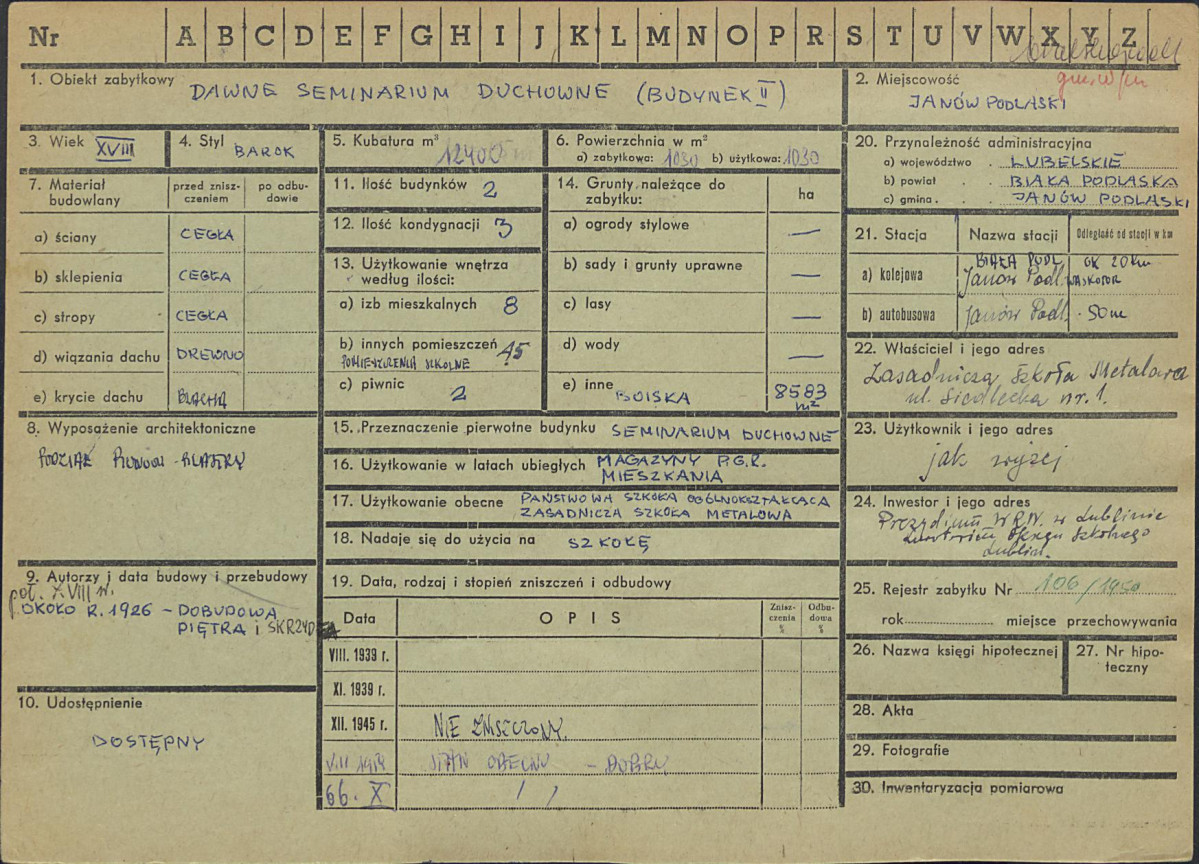 Nr A B C D E F G H I J K L M N O P R S T U V W X Y Z
gm. w/m
1. Obiekt zabytkowy DAWNE SEMINARIUM DUCHOWNE (BUDYNEK II)
2. Miejscowość
JANÓW PODLASKI
3. Wiek XVIII
4. Styl BAROK
5. Kubatura m³
6. Powierzchnia w m²
a) zabytkowa: 1030 b) użytkowa: 1030
7. Materiał budowlany
przed zniszczeniem
po odbudowie
a) ściany CEGŁA
b) sklepienia CEGŁA
c) stropy CEGŁA
d) wiązania dachu DREWNO
e) krycie dachu BLACHA
8. Wyposażenie architektoniczne
PODZIAŁ PIONOWY - PILASTRY
9. Autorzy i data budowy i przebudowy
poł. XVIII w.
OKOŁO R. 1926 - DOBUDOWA
PIĘTRA i SKRZYDŁA
10. Udostępnienie
DOSTĘPNY
11. Ilość budynków 2
12. Ilość kondygnacji 3
13. Użytkowanie wnętrza
według ilości:
a) izb mieszkalnych 8
b) innych pomieszczeń 15
POMIESZCZENIA SZKOLNE
c) piwnic 2
14. Grunty należące do
zabytku:
ha
a) ogrody stylowe —
b) sady i grunty uprawne —
c) lasy —
d) wody —
e) inne BOISKA 8583 m²
15. Przeznaczenie pierwotne budynku SEMINARIUM DUCHOWNE
16. Użytkowanie w latach ubiegłych MAGAZYNY P.G.R.
MIESZKANIA
17. Użytkowanie obecne PAŃSTWOWA SZKOŁA OGÓLNOKSZTAŁCĄCA
ZASADNICZA SZKOŁA METALOWA
18. Nadaje się do użycia na SZKOŁĘ
19. Data, rodzaj i stopień zniszczeń i odbudowy
Data
OPIS
Zniszczenia %
Odbudowa %
VIII. 1939 r.
XI. 1939 r.
XII. 1945 r. NIE ZNISZCZONY
STAN OBECNY - DOBRY
66. X / /
20. Przynależność administracyjna
a) województwo LUBELSKIE
b) powiat BIAŁA PODLASKA
c) gmina JANÓW PODLASKI
21. Stacja
Nazwa stacji
Odległość od stacji w km
BIAŁA PODL. OK 20 km
a) kolejowa Janów Podl. WĄSKOTOR
b) autobusowa Janów Podl. 50 m
22. Właściciel i jego adres
Zasadnicza Szkoła Metalowa
ul. Siedlecka nr. 1.
23. Użytkownik i jego adres
jak wyżej
24. Inwestor i jego adres
Prezydium W.R.N. w Lublinie
Kuratorium Okręgu Szkolnego
Lublin.
25. Rejestr zabytku Nr 106/1950
rok miejsce przechowywania
26. Nazwa księgi hipotecznej
27. Nr hipoteczny
28. Akta
29. Fotografie
30. Inwentaryzacja pomiarowa